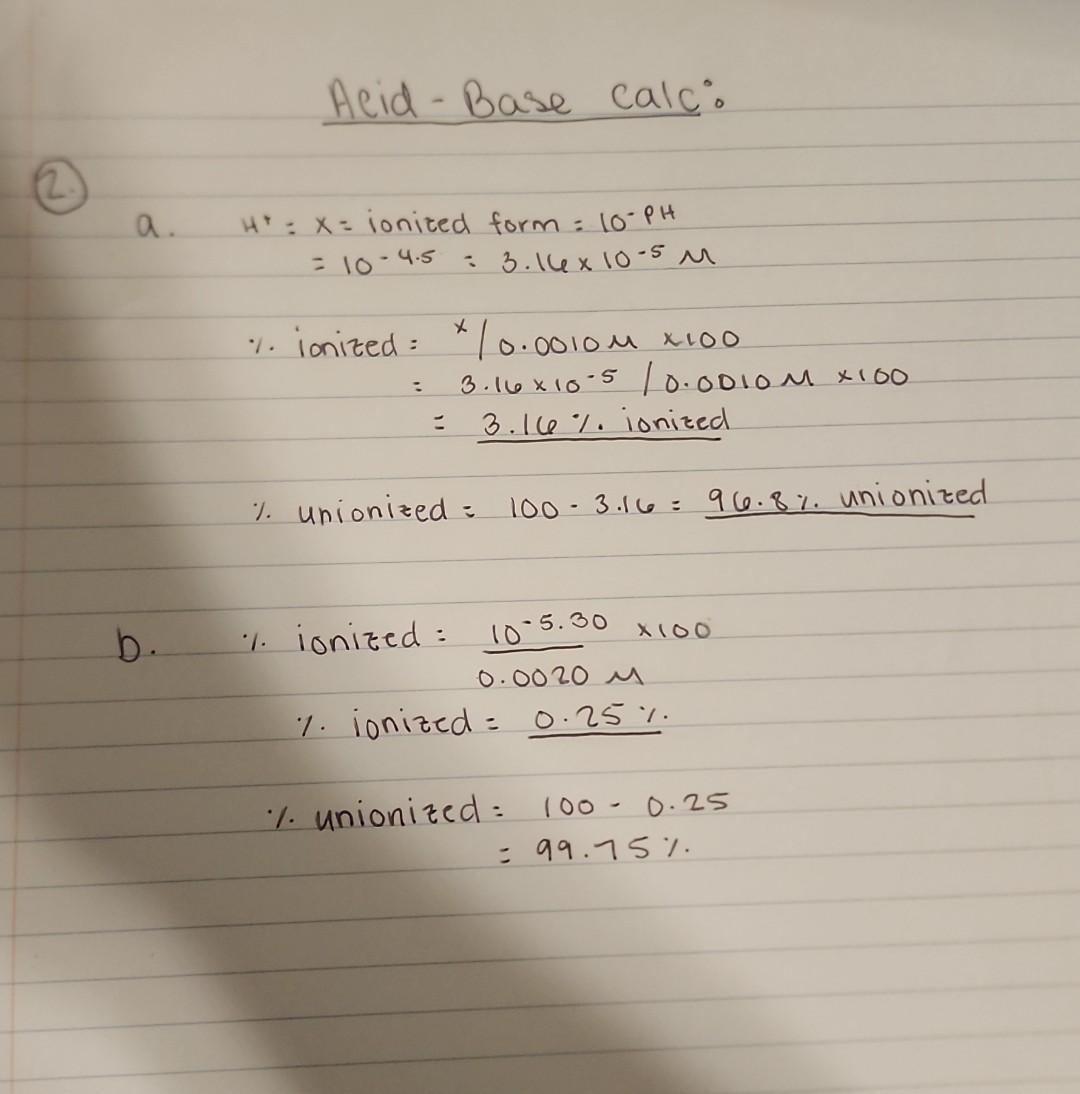 Acid - Base calc:
2.
a. H⁺ = x = ionized form = 10⁻ᴾᴴ
= 10⁻⁴·⁵ = 3.16 x 10⁻⁵ M
% ionized = x / 0.0010 M x100
= 3.16 x 10⁻⁵ / 0.0010 M x100
= 3.16 % ionized
% unionized = 100 - 3.16 = 96.8 % unionized
b. % ionized = 10⁻⁵·³⁰ x100
0.0020 M
% ionized = 0.25 %
% unionized = 100 - 0.25
= 99.75 %